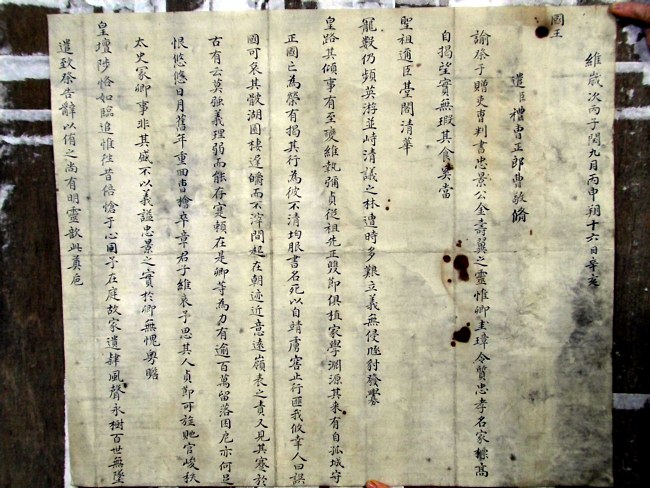 維歲次丙子閏九月丙申朔十六日辛亥
國王
遣臣禮曹正郎曹敬脩
諭祭于贈吏曹判書忠景公金壽翼之靈惟卿圭璋令質忠孝名家標高
自揭望實無瑕其食奚當
聖祖通臣臺閣清華
寵數仍頻英游並峙清議之林遭時多難立義無侵豗豺發釁
皇路其傾事有至變維執彌貞從祖先正毀節俱植家學淵源其來有自孤城守
正國已為榮有揭其行為彼不清均服書名死以自靖虜害止行匪我攸幸人曰誤
國可哀其戡湖囿棲遲皭而不滓間起在朝迹近意遠嶺表之責又見其蹇於
古有云莫強義理弱而能存寔賴在是卿等為力有逾百萬留落困庀亦何足
恨悠悠日月舊年重回曹檜卒章君子維哀予思其人貞節可旌貤官峻秩
太史家卿事非其盛不以義謚忠景之實於卿無愧粵瞻
皇壇陟恪如臨追惟往昔倍愴于心聞予在庭故家遺肆風聲永樹百世無墜
遣致祭告辭以侑之尚有明靈歆此奠卮